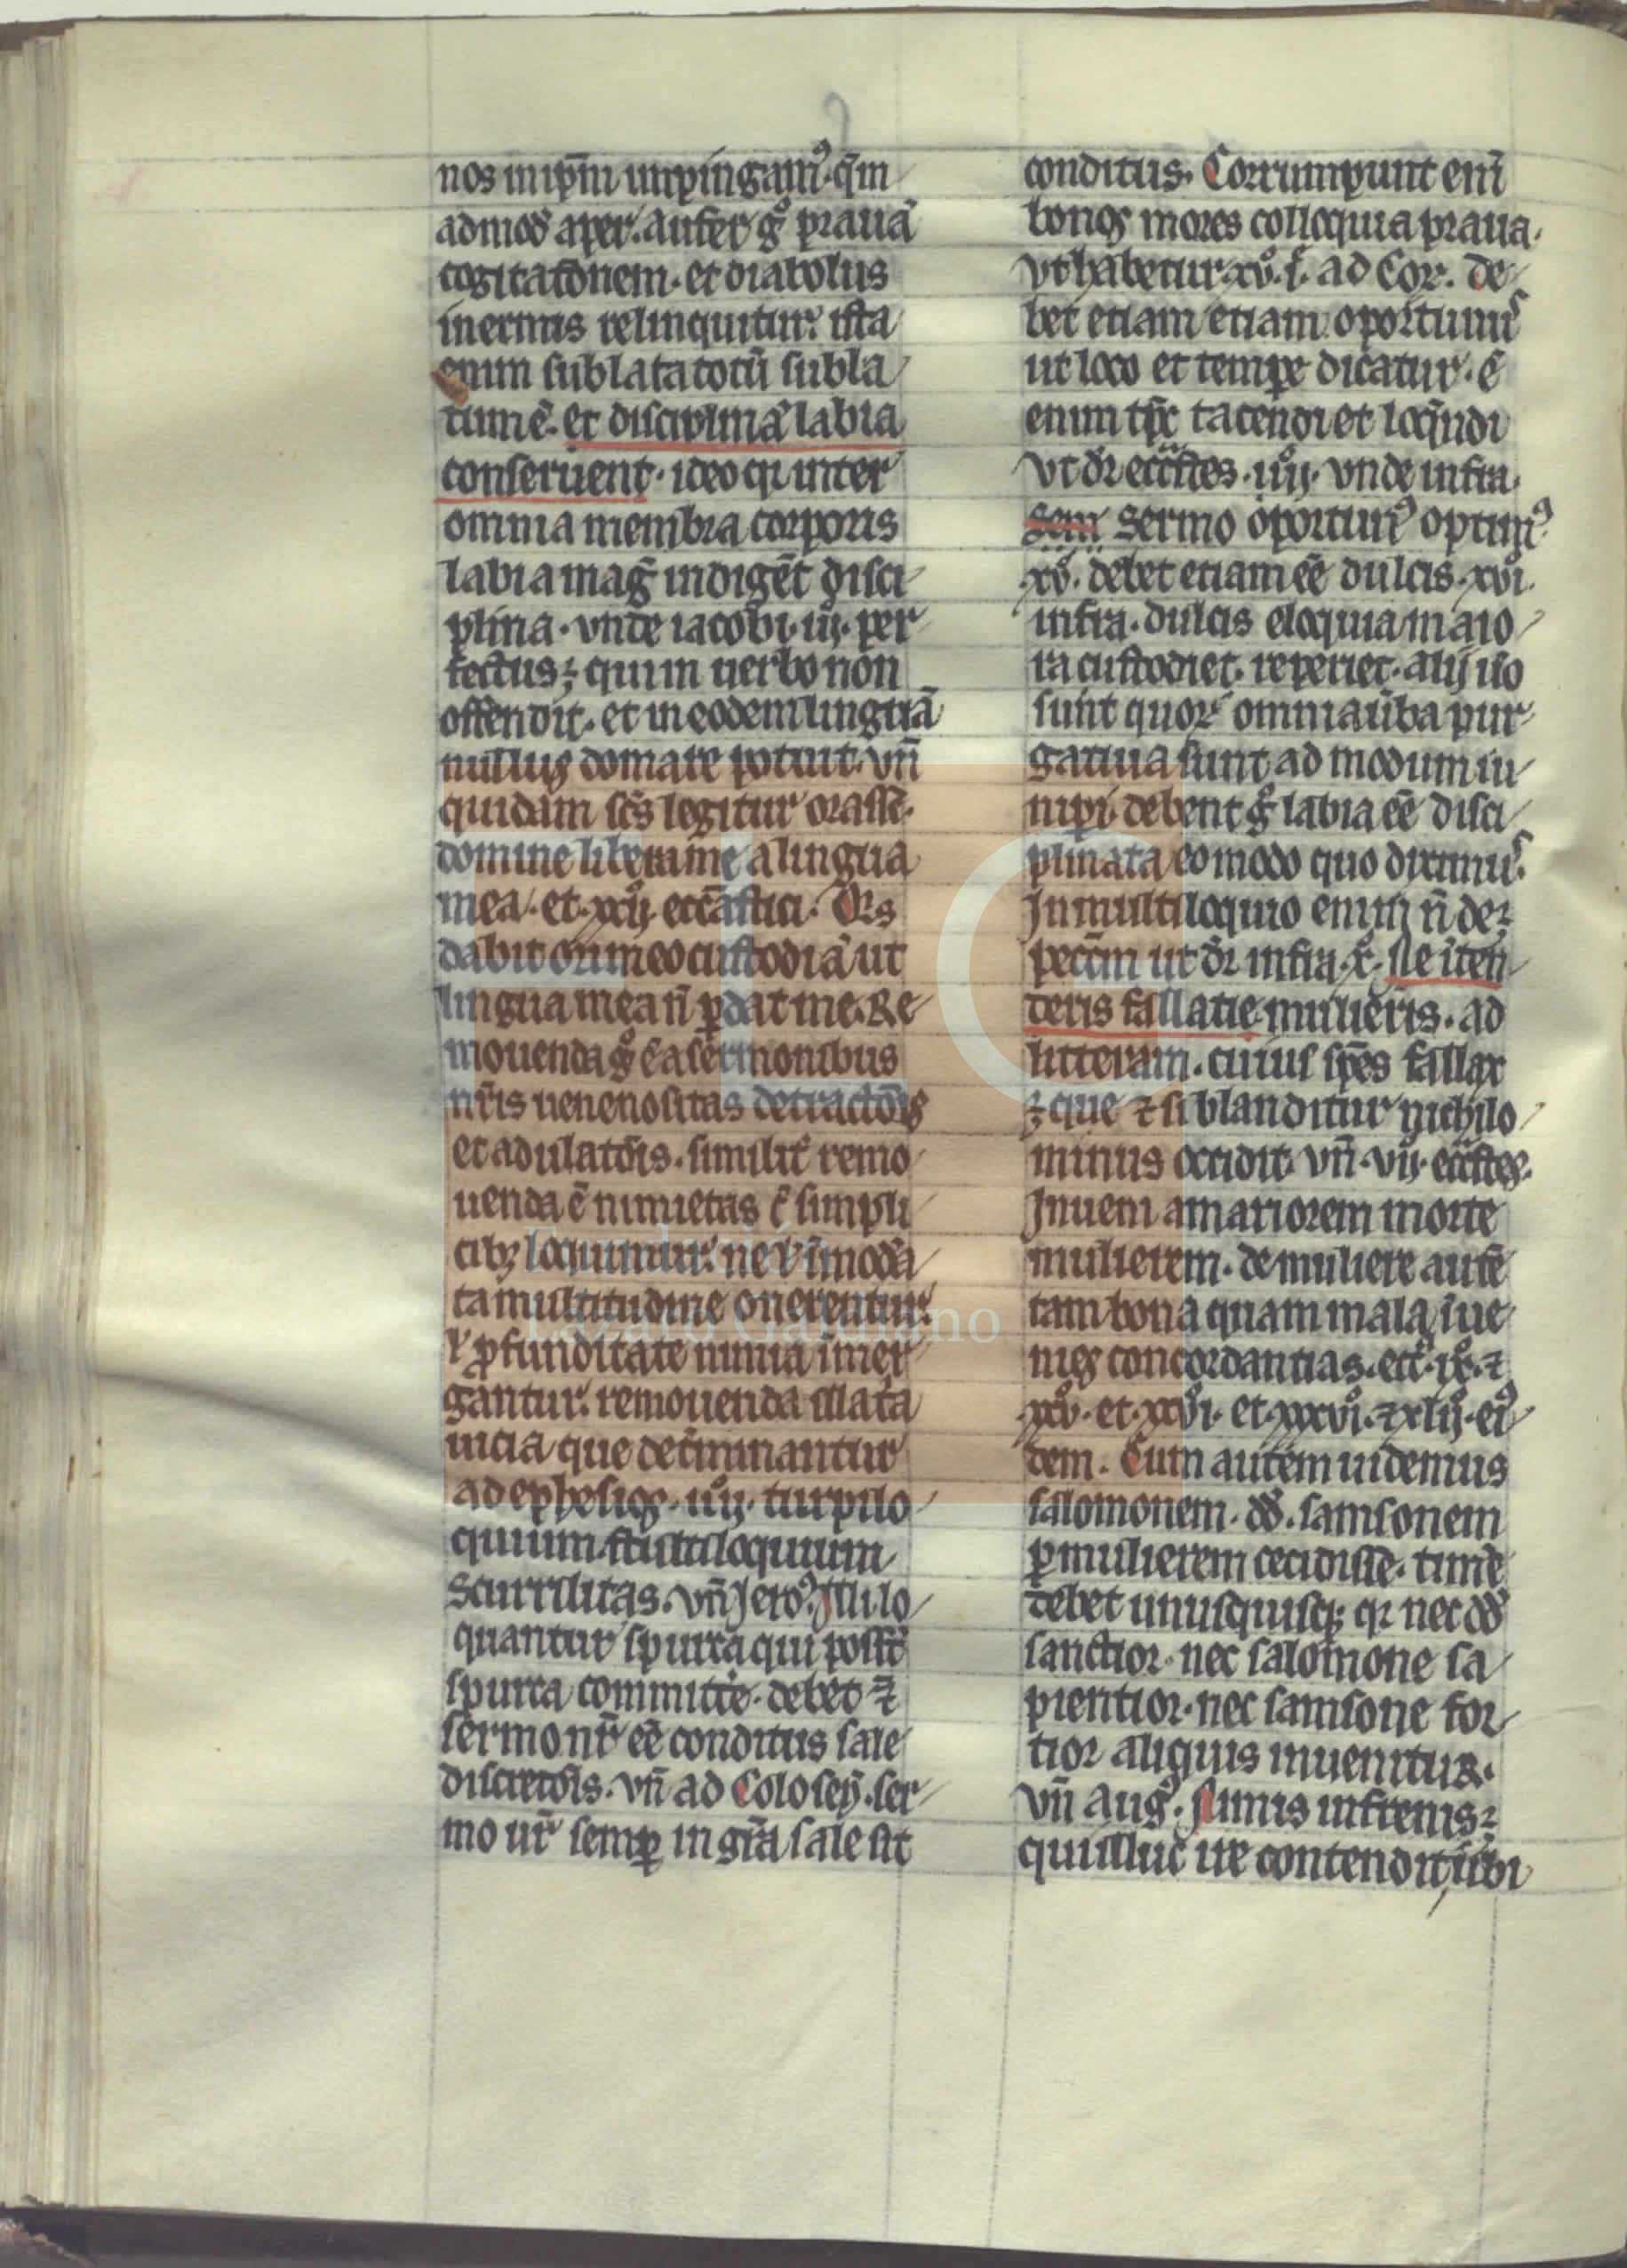 nos in ip̄m inpingam⁹. qm̄
admod᷑ aper. aufer gͦ prauā
cogitatōnem. et diabolus
inermis relinquitur. ista
enim sublata totū subla
tum ē. et disciplinā labia
conseruent. ideo qi inter
omnia membra corporis
labia maḡ indigēt disci
plina. vnde iacobi. iij. per
fectus ē qui in uerbo non
offendit. et in eodem linguā
nullus domare potuit. vn̄
quidam sc̄s legitur orasse.
domine libera me a lingua
mea. et. xxij. ecc̄astici. Q̄is
dabit ori meo custodiā ut
lingua mea n̄ ꝑdat me. Re
mouenda gͦ ē a sermonibus
nr̄is uenenositas detractōis
et adulatōis. similit᷑ remo
uenda ē nimietas c᷑ simpli
cibꝫ loquimur. ne ł īmoda
ta multitudine onerentur.
ł ꝓfunditate nimia īmer
gantur. remouenda illa t᷑a
uicia que det᷑minantur
ad ephesios. iiij. turpilo
quium. stultiloquium
scurrilitas. vn̄ Jero⁹. Illi lo
quantur spurca qui poss̄t
spurca committe᷑. debet ⁊
sermo nr̄ ēē conditus sale
discretōis. vn̄ ad Colosen̄. ser
mo ur̄ semꝑ in gr̄a sale sit
conditus. Corrumpunt eni᷑
bonos mores colloquia praua.
vt habetur. xv. i. ad Cor. de
bet etiam etiam oportunus
ut loco et tempe᷑ dicatur. ē
enim tp̄c tacendi et loq̄ndi
vt dr̄ ecc̄stes. iij. vnde infra.
sem sermo oportun⁹ optim⁹
xv. debet etiam ēē dulcis. xvi
infra. dulcis eloquia maio
ra custodiet. reperiet. alij u᷑o
sunt quor᷑ omnia ūba pur
gatiua sunt ad modum iu
nipi᷑. debent gͦ labia ēē disci
plinata eo modo quo diximus.
In multiloquio enim n̄ deē
pecc̄m ut dr̄ infra. x. Ne īten
deris fallatie mulieris. ad
litteram. cuius sp̄es fallax
ē que ⁊ si blanditur nichilo
minus occidit. vn̄. vij. ecc̄stes.
Inueni amariorem morte
mulierem. de muliere autē
tam bona quam mala īue
nies concordantias. ecc̄. ix. ⁊
xxv. et. xxvi. et. xxxvi. ⁊ xlij. ei⁹
dem. Cum autem uidemus
salomonem. dd᷑. samsonem
ꝑ mulierem cecidisse. time᷑
debet unusquisqꝫ. qr nec dd᷑
sanctior. nec salomone sa
pientior. nec samsone for
tior aliquis inuenitur.
vn̄ aug᷑. Nimis infrenis ē
qui illuc ire contendit, ubi